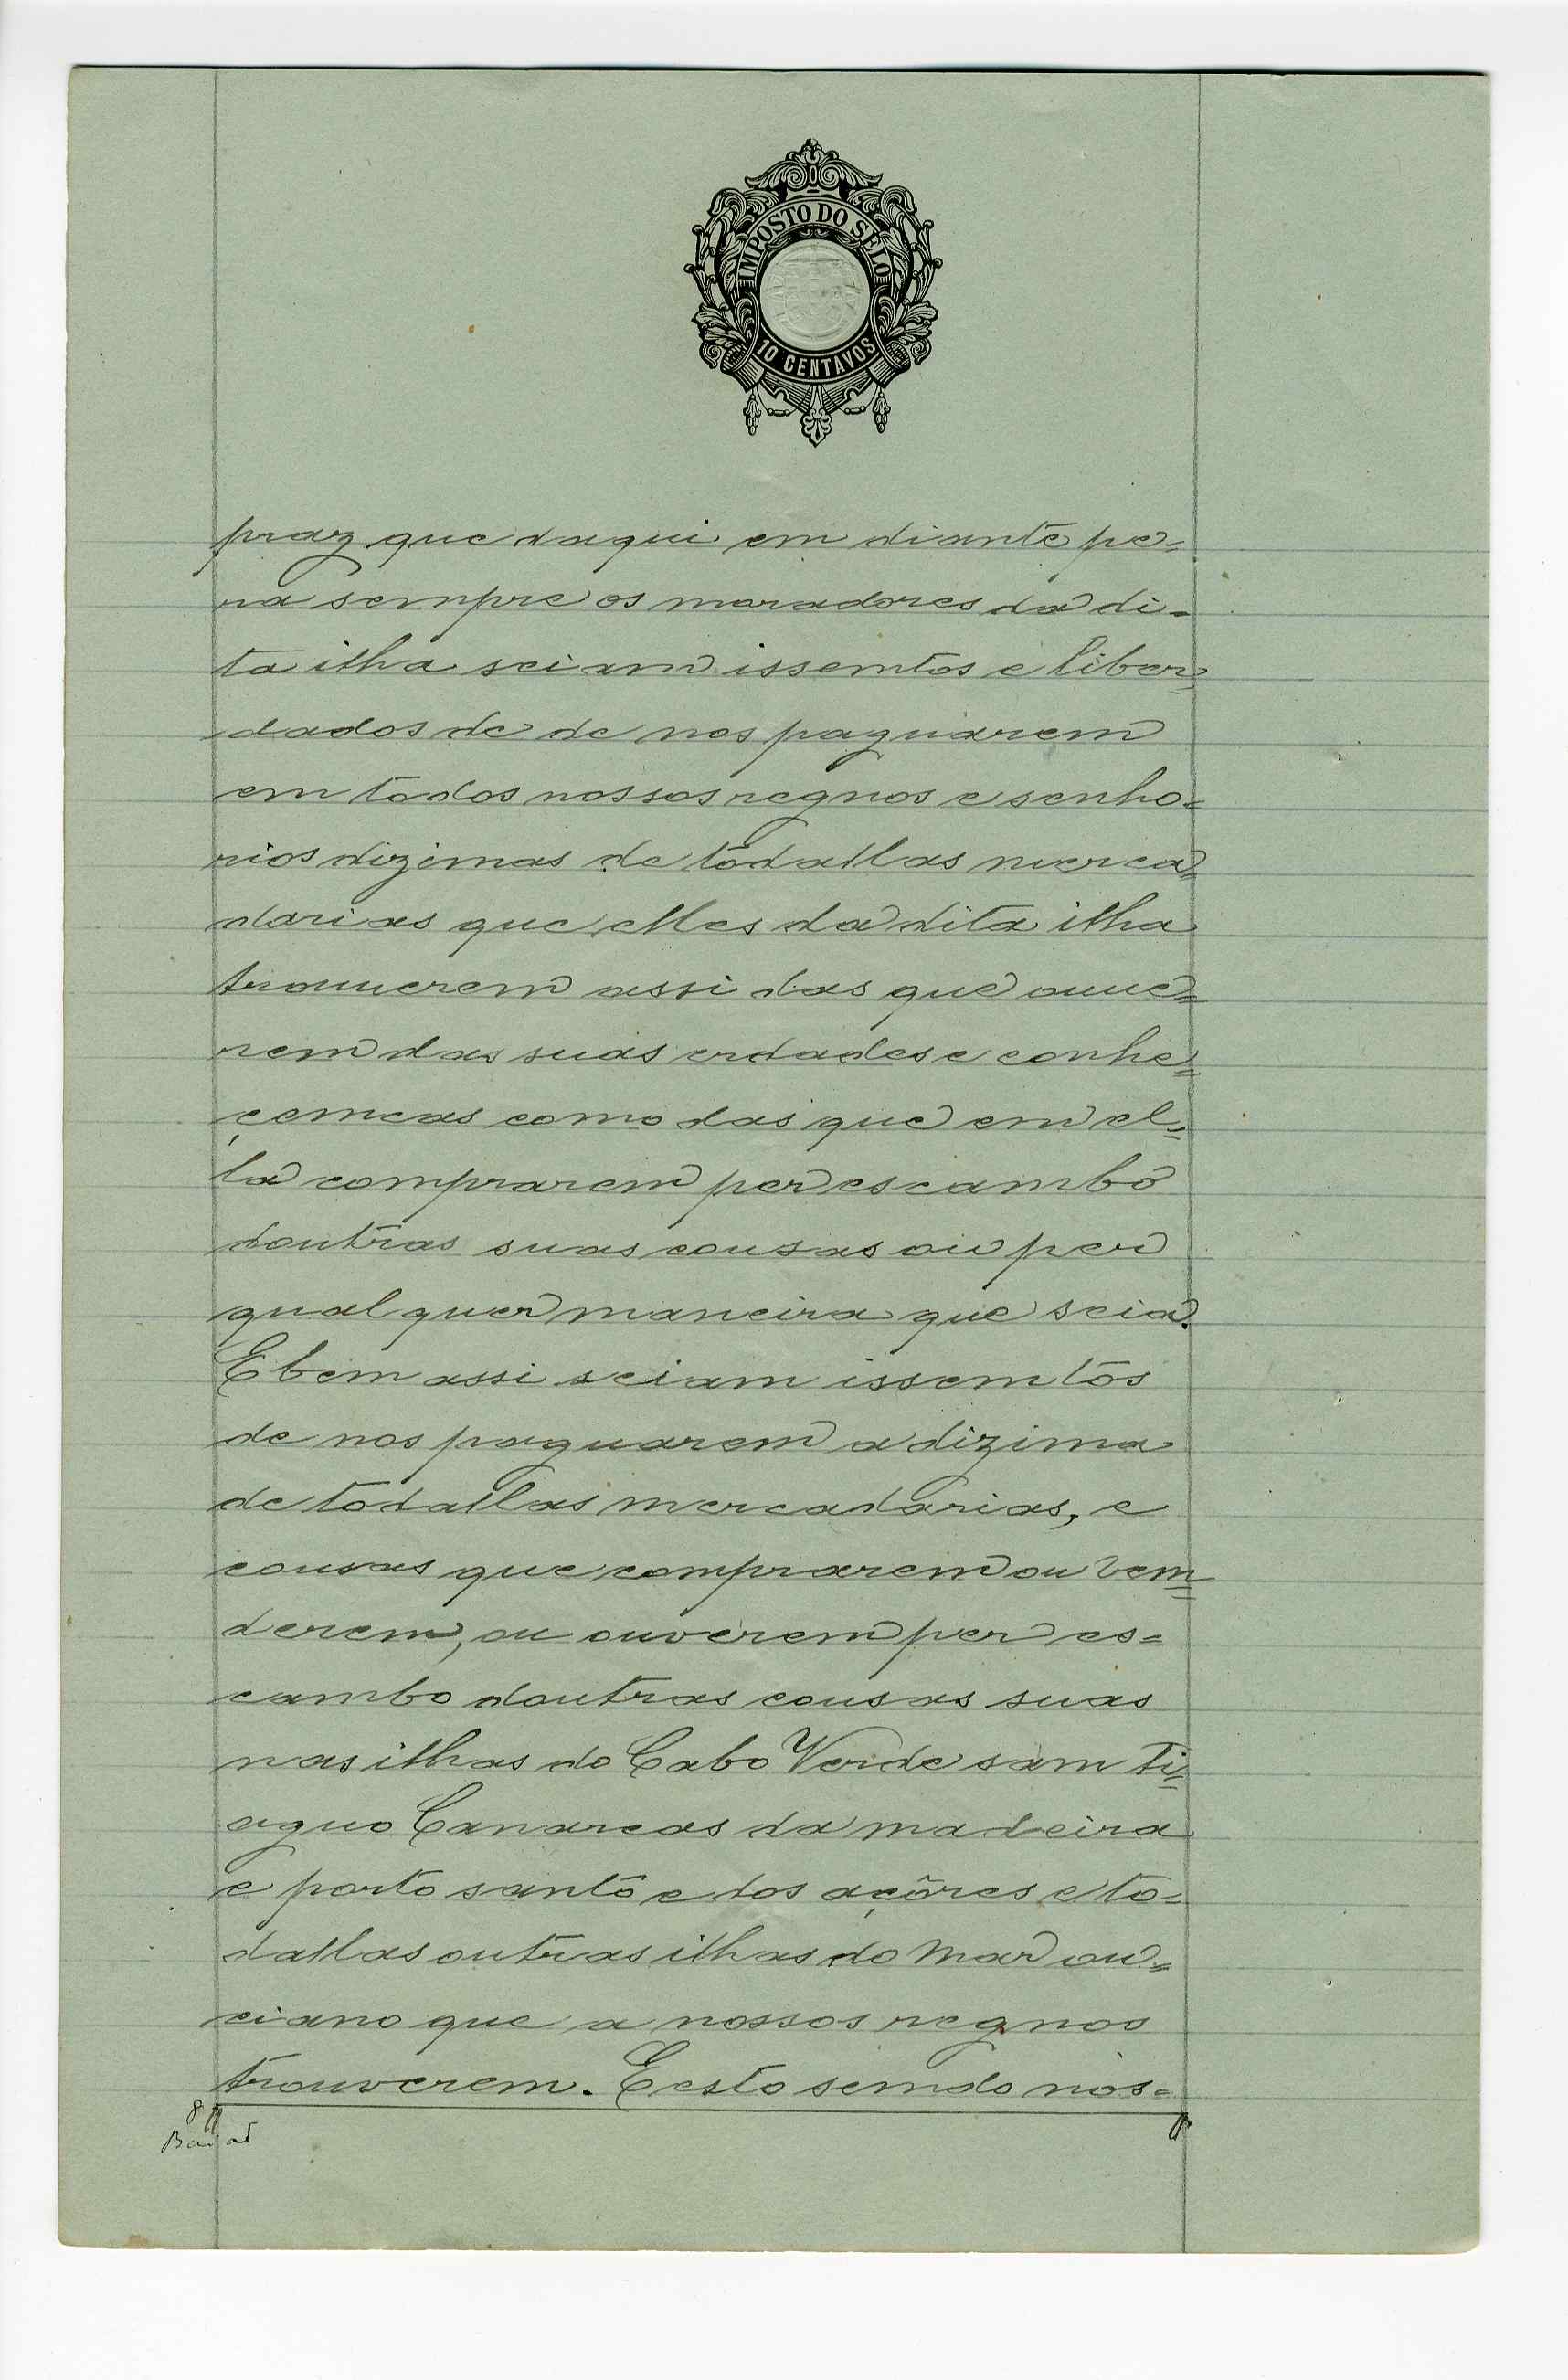 IMPOSTO DO SELO
10 CENTAVOS
praz que daqui em diante pe=
ra sempre os moradores da di=
ta ilha seiam issemtos e liber=
dados de de nos paguarem
em todos nossos regnos e senho=
rios dizimas de todallas merca=
darias que elles da dita ilha
trouuerem assi das que ouue=
rem das suas erdades e conhe=
çemcas como das que em el=
la comprarem per escambo
doutras suas cousas ou per
qual quer maneira que seia.
E bem assi seiam issemtos
de nos paguarem a dizima
de todallas mercadarias, e
cousas que comprarem ou vem=
derem, ou ouverem per es=
cambo doutras cousas suas
nas ilhas do Cabo Verde sam Ti=
aguo Canareas da madeira
e porto santo e dos açôres e to=
dallas outras ilhas do mar ou=
ciano que a nossos regnos
trouverem. E esto semdo nos=
8